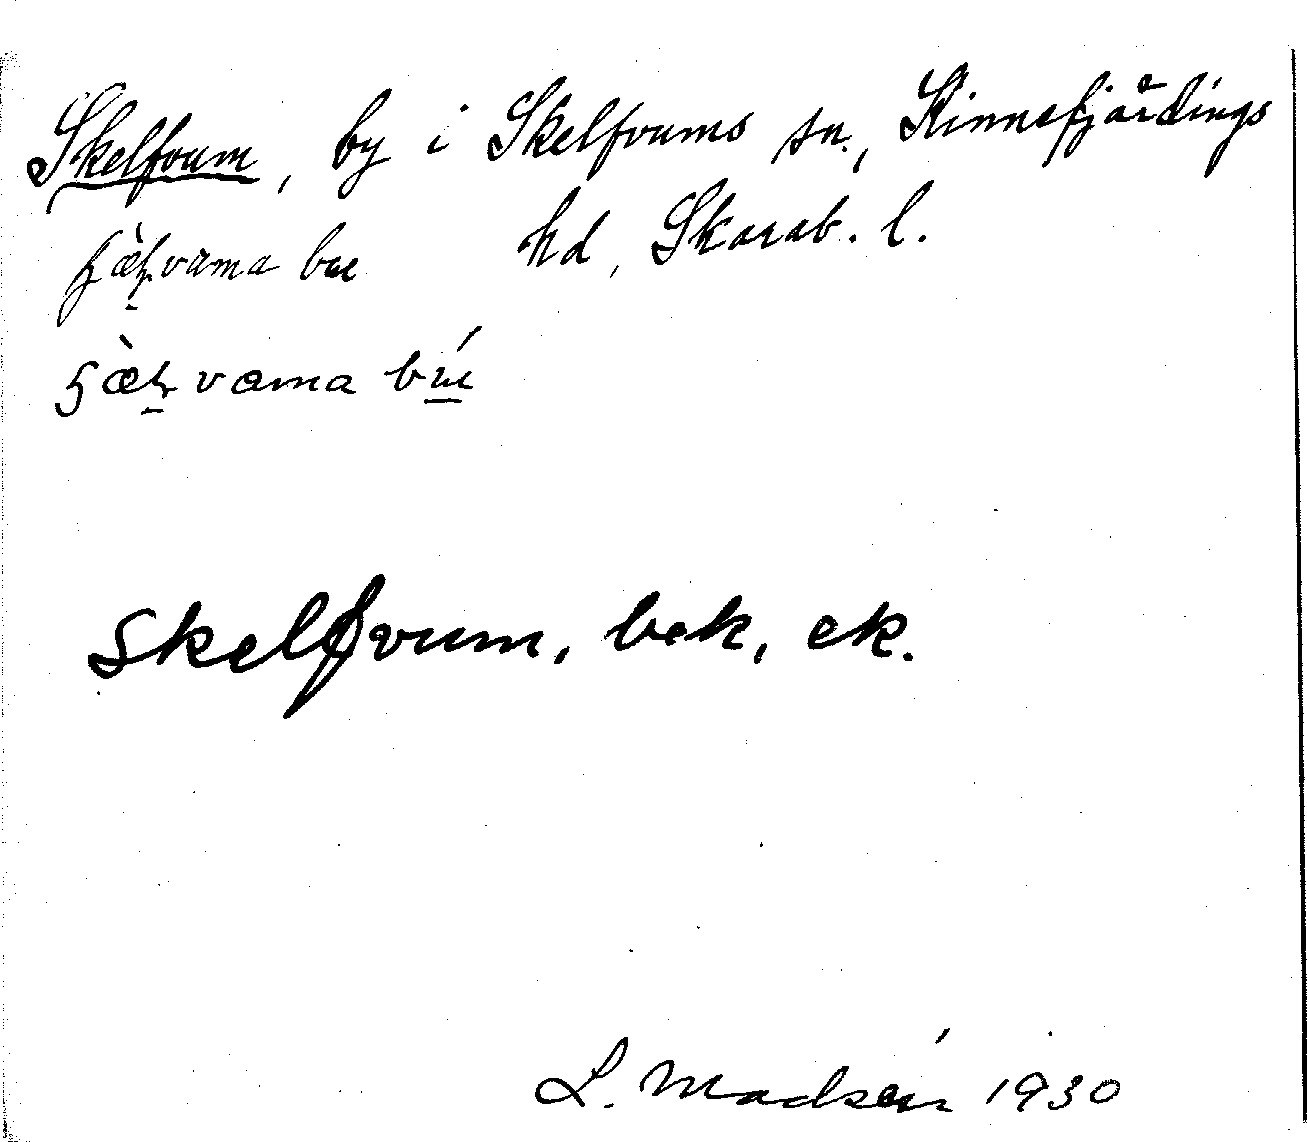 Skelfvum, by i Skelfvums sn., Kinnefjärdings
hd, Skarab. l.
Skelfvum, bek, ek.
L. Madsén 1930